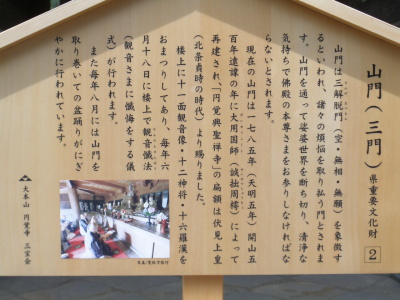 山門（三門）県重要文化財 2
山門は三解脱門（空・無相・無願）を象徴す
るといわれ、諸々の煩悩を取り払う門とされま
す。山門を通って娑婆世界を断ち切り、清浄な
気持ちで佛殿の本尊さまをお参りしなければな
らないとされます。
現在の山門は一七八五年（天明五年）開山五
百年遠諱の年に大用国師（誠拙周樗）によって
再建され、「円覚興聖禅寺」の扁額は伏見上皇
（北条貞時の時代）より賜りました。
楼上に十一面観音像・十二神将・十六羅漢を
おまつりしてあり、毎年六
月十八日に楼上で観音懺法
（観音さまに懺悔をする儀
式）が行われます。
また毎年八月には山門を
取り巻いての盆踊りがにぎ
やかに行われています。
大本山 円覚寺 三宝会